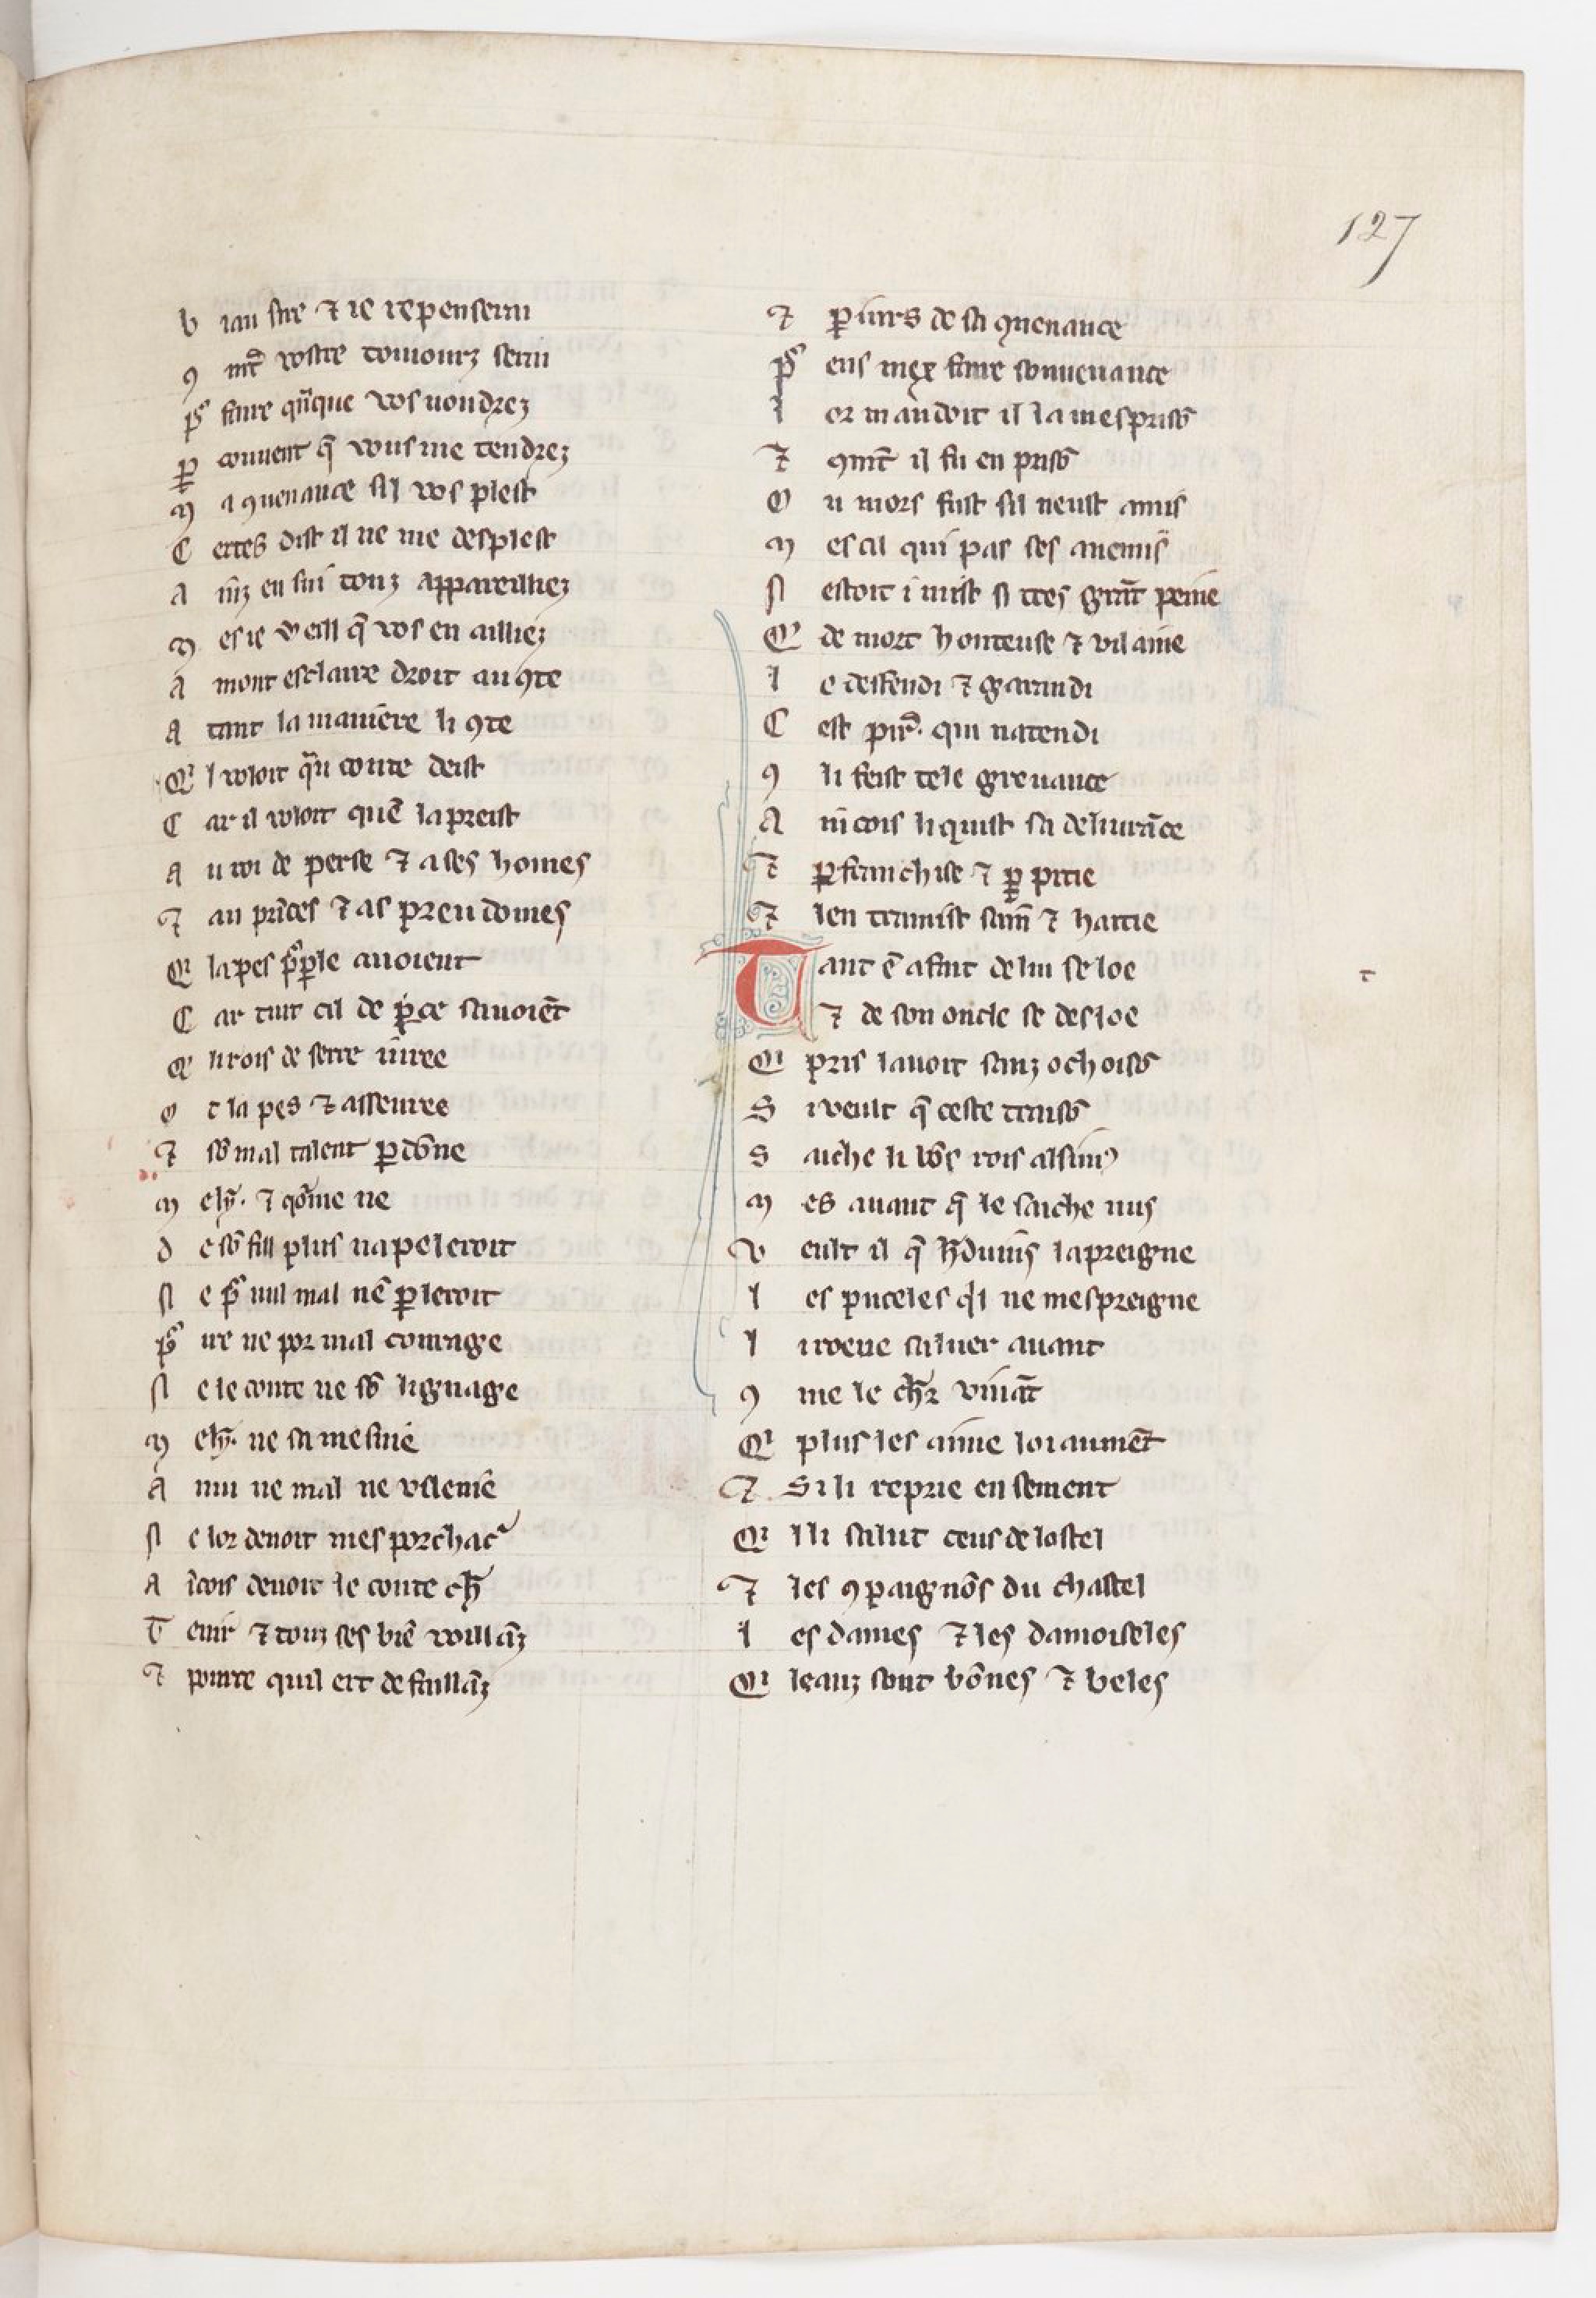 127
b iau sire ⁊ ie i epenserai
ꝯ me͛ vostre touiourz serai
pͬ faire qͣnque vos uoudrez
ꝑ conuent q̃ vous me tendrez
m a ꝯuenance sil vos plest
C ertes dist il ne me desplest
A inz en sui touz appareilliez
m es ie veill q̃ vos en ailliez
A mont esclaire droit au ꝯte
A tant la maniere li ꝯte
Qͥ l voloit qͣu conte deist
C ar il voloit quẽ la preist
A u roi de perse ⁊ a ses homes
⁊ au prĩces ⁊ as preudomes
Qͥ la pes pͬ ꝑle auoient
C ar tuit cil de ꝑce sauoiẽt
Qͥ li rois de serre iuree
o t la pes ⁊ asseuree
⁊ sõ mal talent ꝑdõne
m ely᷑. ⁊ qõme ne
d e sõ fill plus napeleroit
N e pͬ nul mal nẽ ꝑleroit
pͬ ire ne por mal courage
N e le conte ne sõ lignage
m ely᷑. ne sa mesnie
A nui ne mal ne vilenie
N e lor deuoit mes porchac͛
A ĩcois deuoit le conte ch͛
T enir ⁊ touz ses biẽ vouillãz
⁊ pouure quil ert defaillãz
⁊ ꝑiurs de sa ꝯuenance
pͬ eus mex faire souuenance
l or mandoit il la mesprisõ
⁊ ꝯmẽt il fu en prisõ
O u mors fust sil neust amis
m es cil qui pas ses anemis
N estoit i mist si tres grãt peine
Qͥ de mort honteuse ⁊ vilaine
l e desfendi ⁊ garandi
C est pir͛. qui natendi
ꝯ li feist tele greuance
A ncois li quist sa deliurãce
⁊ ꝑ franchise ⁊ ꝑ pitie
⁊ len tramist sain ⁊ haitie
Tant ẽ a fait de lui se loe
⁊ de son oncle se desloe
Qͥ pris lauoit sanz ochoisõ
S i veult q̃ ceste traisõ
S aiche li bõs rois alsimꝰ
m es auant q̃ le saiche nus
v eult il q̃ hᷓduins lapreigne
l es puceles qͥl ne mespreigne
l i roeue saluer auant
ꝯ me le ch͛r viuãt
Qͥ plus les aime loiaumẽt
⁊ Si li reprie ensement
Qͥ l li salut ceus de lostel
⁊ les ꝯpaignõs du chastel
l es dames ⁊ les damoiseles
Qͥ leanz sont bõnes ⁊ beles
t